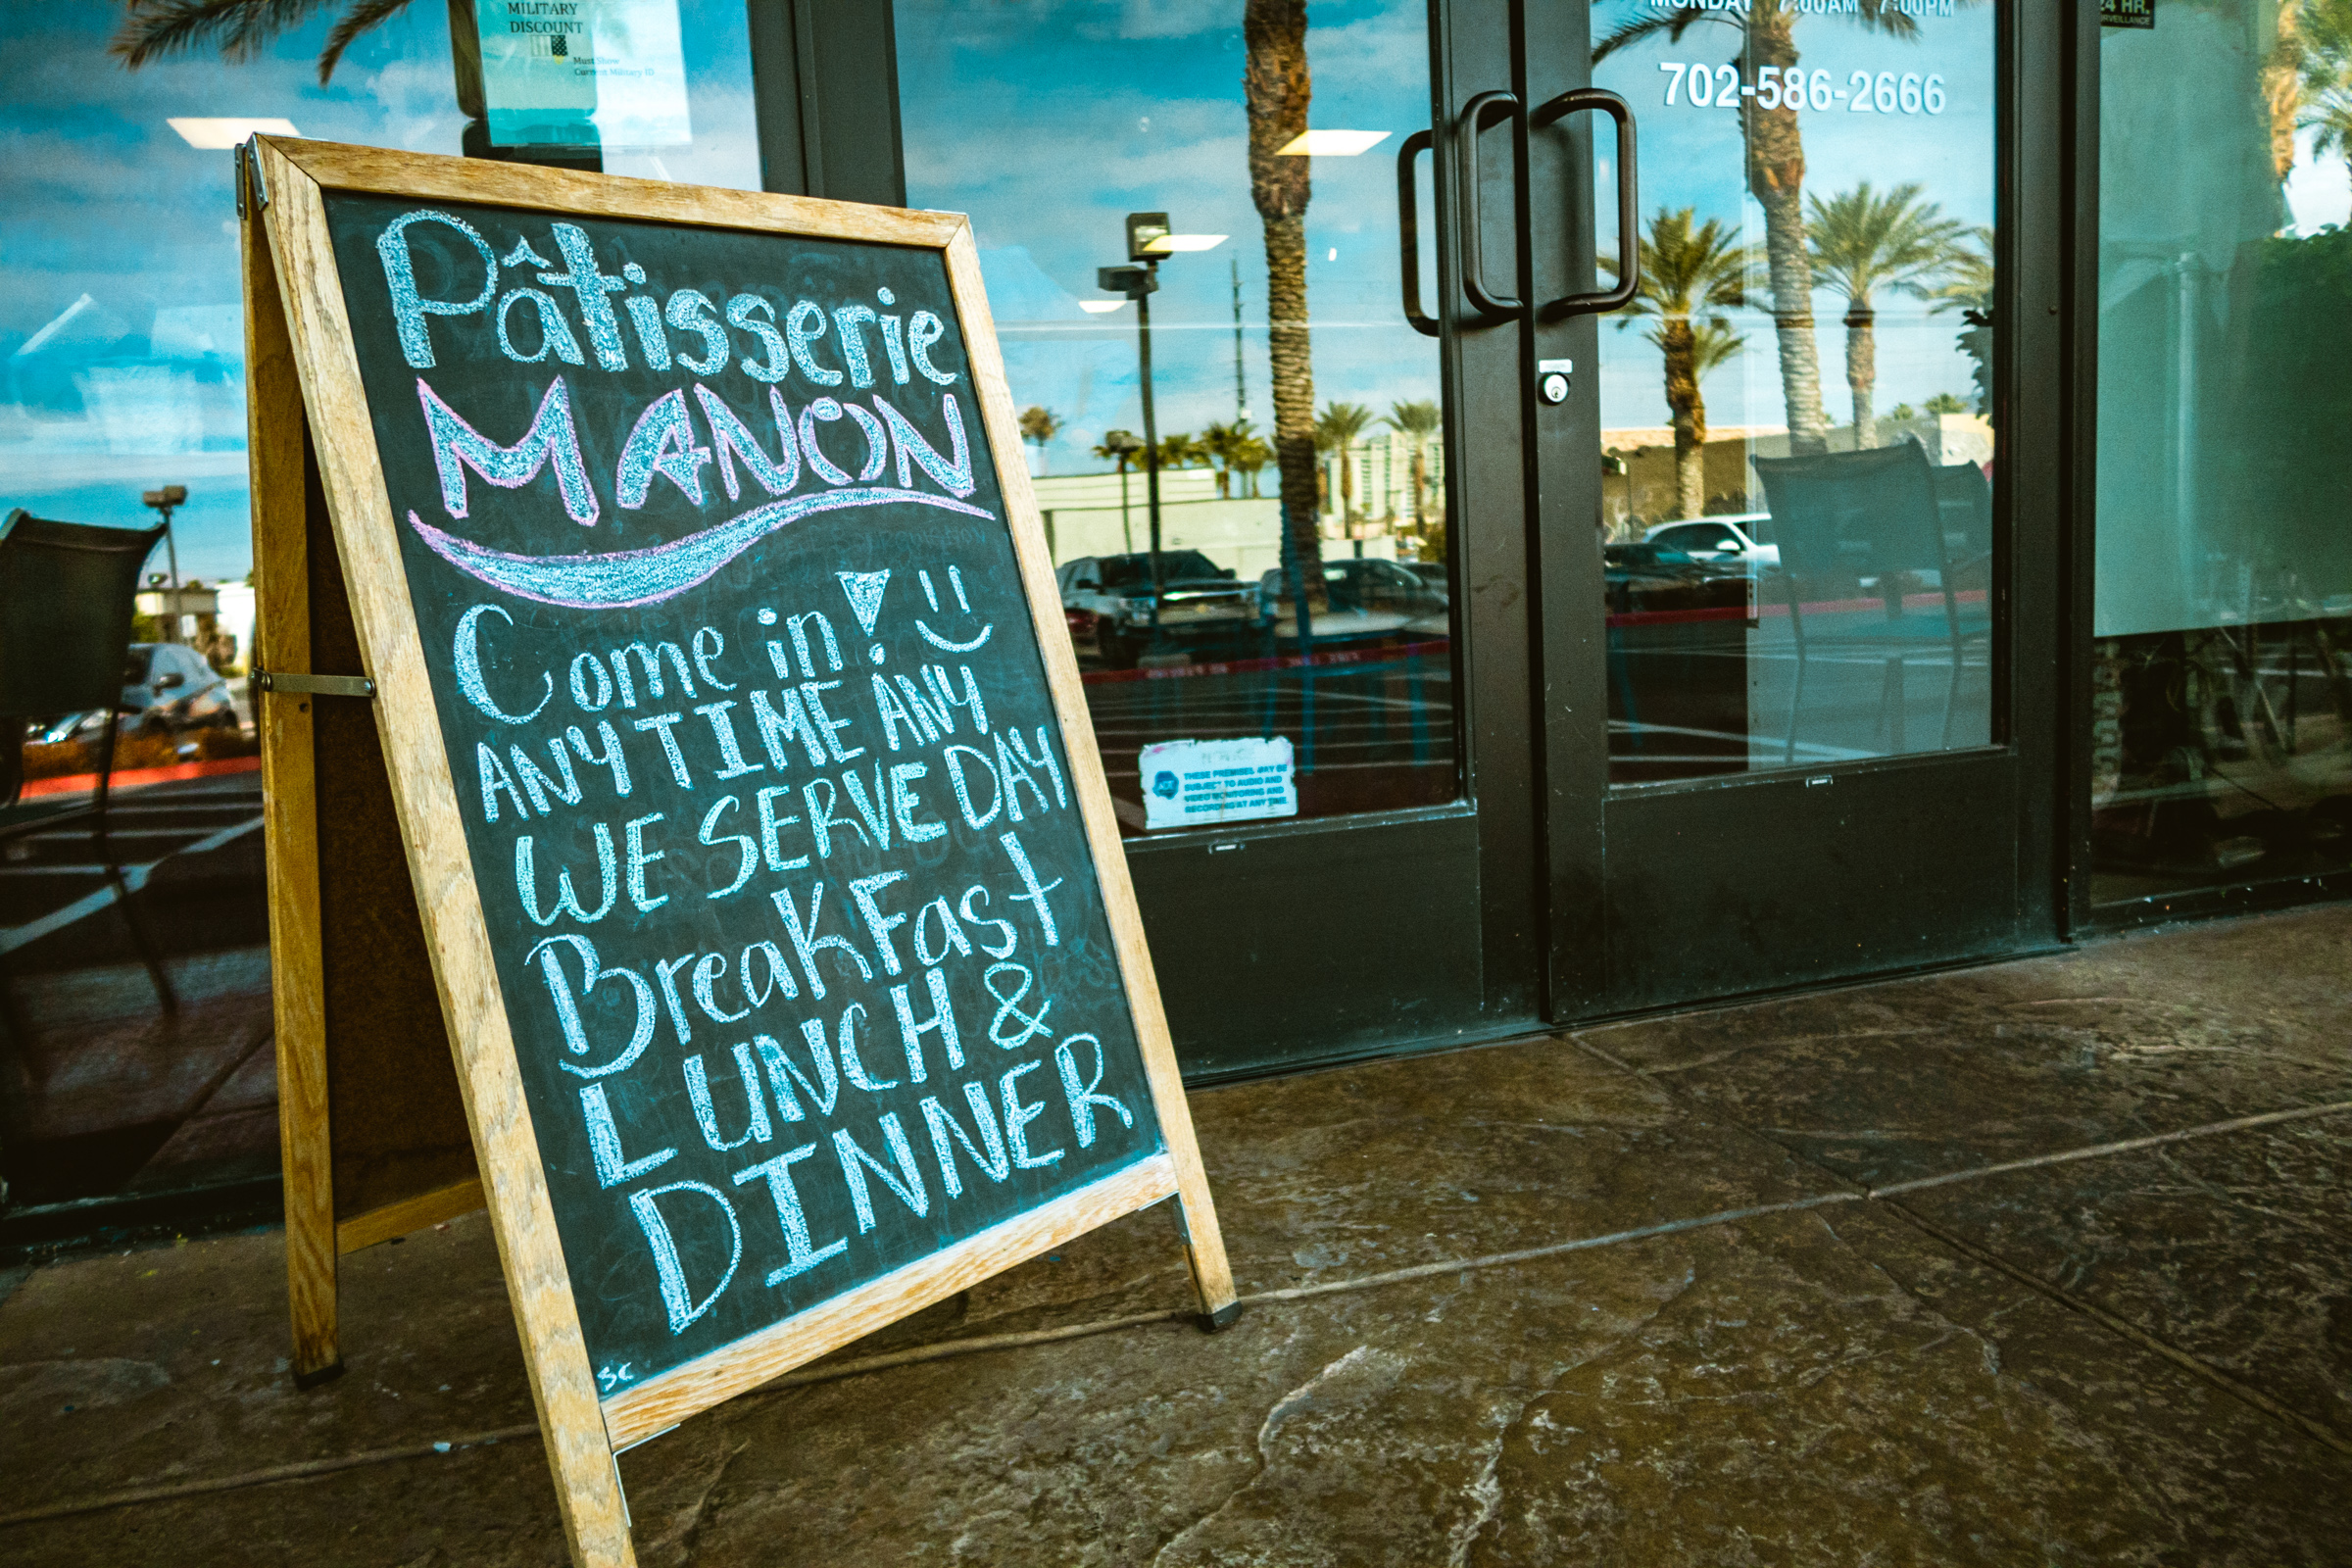 Pâtisserie
MANON
Come in!
ANYTIME ANY
WE SERVE DAY
BreakFast
LUNCH &
DINNER
SC
MILITARY
DISCOUNT
Must Show
Current Military ID
MONDAY 7:00AM 7:00PM
702-586-2666
24 HR.
THESE PREMISES MAY BE
SUBJECT TO AUDIO AND
VIDEO MONITORING AND
RECORDING AT ANY TIME.